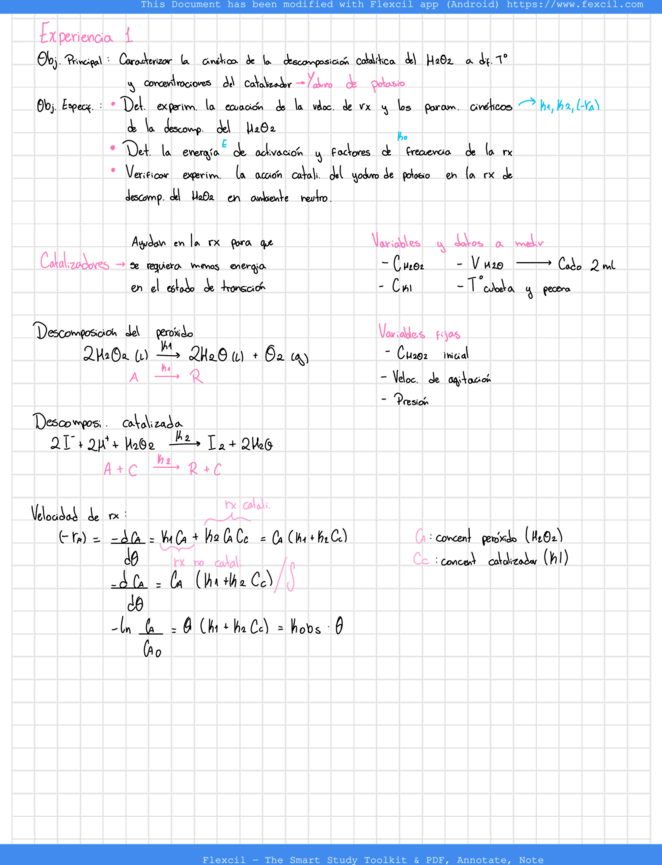 This Document has been modified with Flexcil app (Android) https://www.fexcil.com
Experiencia 1
Obj. Principal : Caracterizar la cinética de la descomposición catalítica del H2O2 a dif. T°
y concentraciones del catalizador → Yoduro de potasio
Obj. Especif. : • Det. experim. la ecuación de la veloc. de rx y los param. cinéticos → k1, k2, (-rA)
de la descomp. del H2O2
• Det. la energía E de activación y factores de frecuencia k0 de la rx
• Verificar experim. la acción catali. del yoduro de potasio en la rx de
descomp. del H2O2 en ambiente neutro.
Ayudan en la rx para que
Catalizadores → se requiera menos energia
en el estado de transción
Variables y datos a medir
- CH2O2 - V H2O → Cada 2 ml
- CKI - T° cubeta y pecera
Descomposición del peróxido
2H2O2 (l) k1→ 2H2O (l) + O2 (g)
A k1→ R
Variables fijas
- CH2O2 inicial
- Veloc. de agitación
- Presión
Descomposi. catalizada
2I⁻ + 2H⁺ + H2O2 k2→ I2 + 2H2O
A + C k2→ R + C
Velocidad de rx :
rx catali.
(-rA) = -dCA/dθ = k1 CA + k2 CA CC = CA (k1 + k2 CC)
rx no catali.
-dCA/dθ = CA (k1 + k2 CC) /∫
-ln CA/CA0 = θ (k1 + k2 CC) = kobs · θ
CA : concent peróxido (H2O2)
CC : concent catalizador (KI)
Flexcil - The Smart Study Toolkit & PDF, Annotate, Note